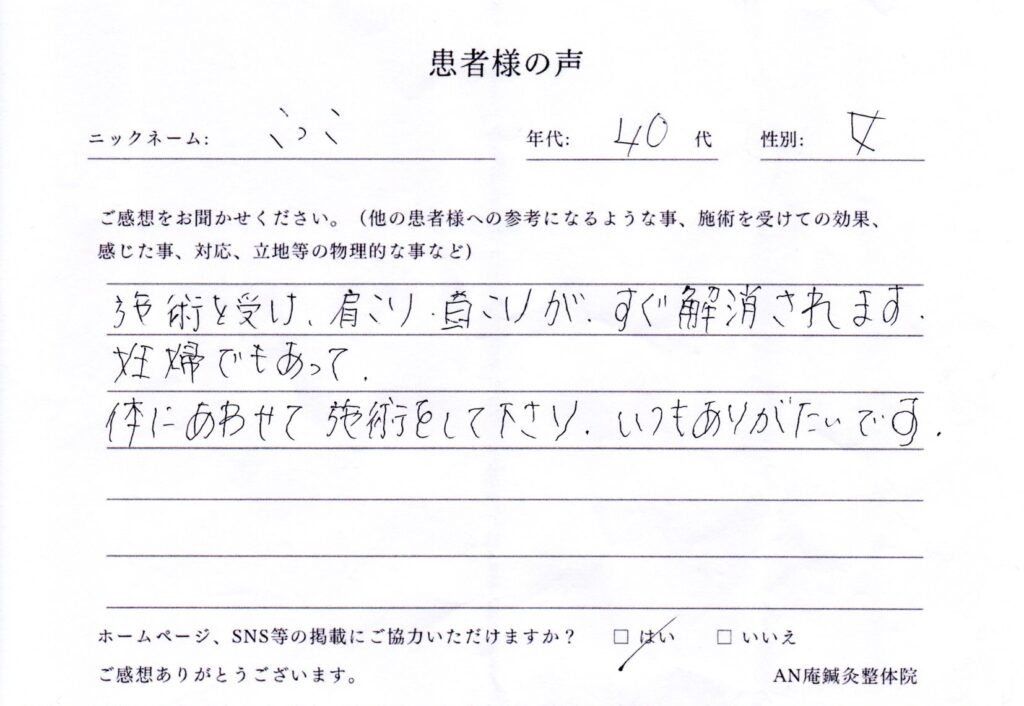 患者様の声
ニックネーム: 年代: 40 代 性別: 女
ご感想をお聞かせください。（他の患者様への参考になるような事、施術を受けての効果、
感じた事、対応、立地等の物理的な事など）
施術を受け、肩こり.首こりが.すぐ解消されます.
妊婦でもあって.
体にあわせて施術をして下さり.いつもありがたいです.
ホームページ、SNS等の掲載にご協力いただけますか？ □ はい □ いいえ
ご感想ありがとうございます。 AN庵鍼灸整体院